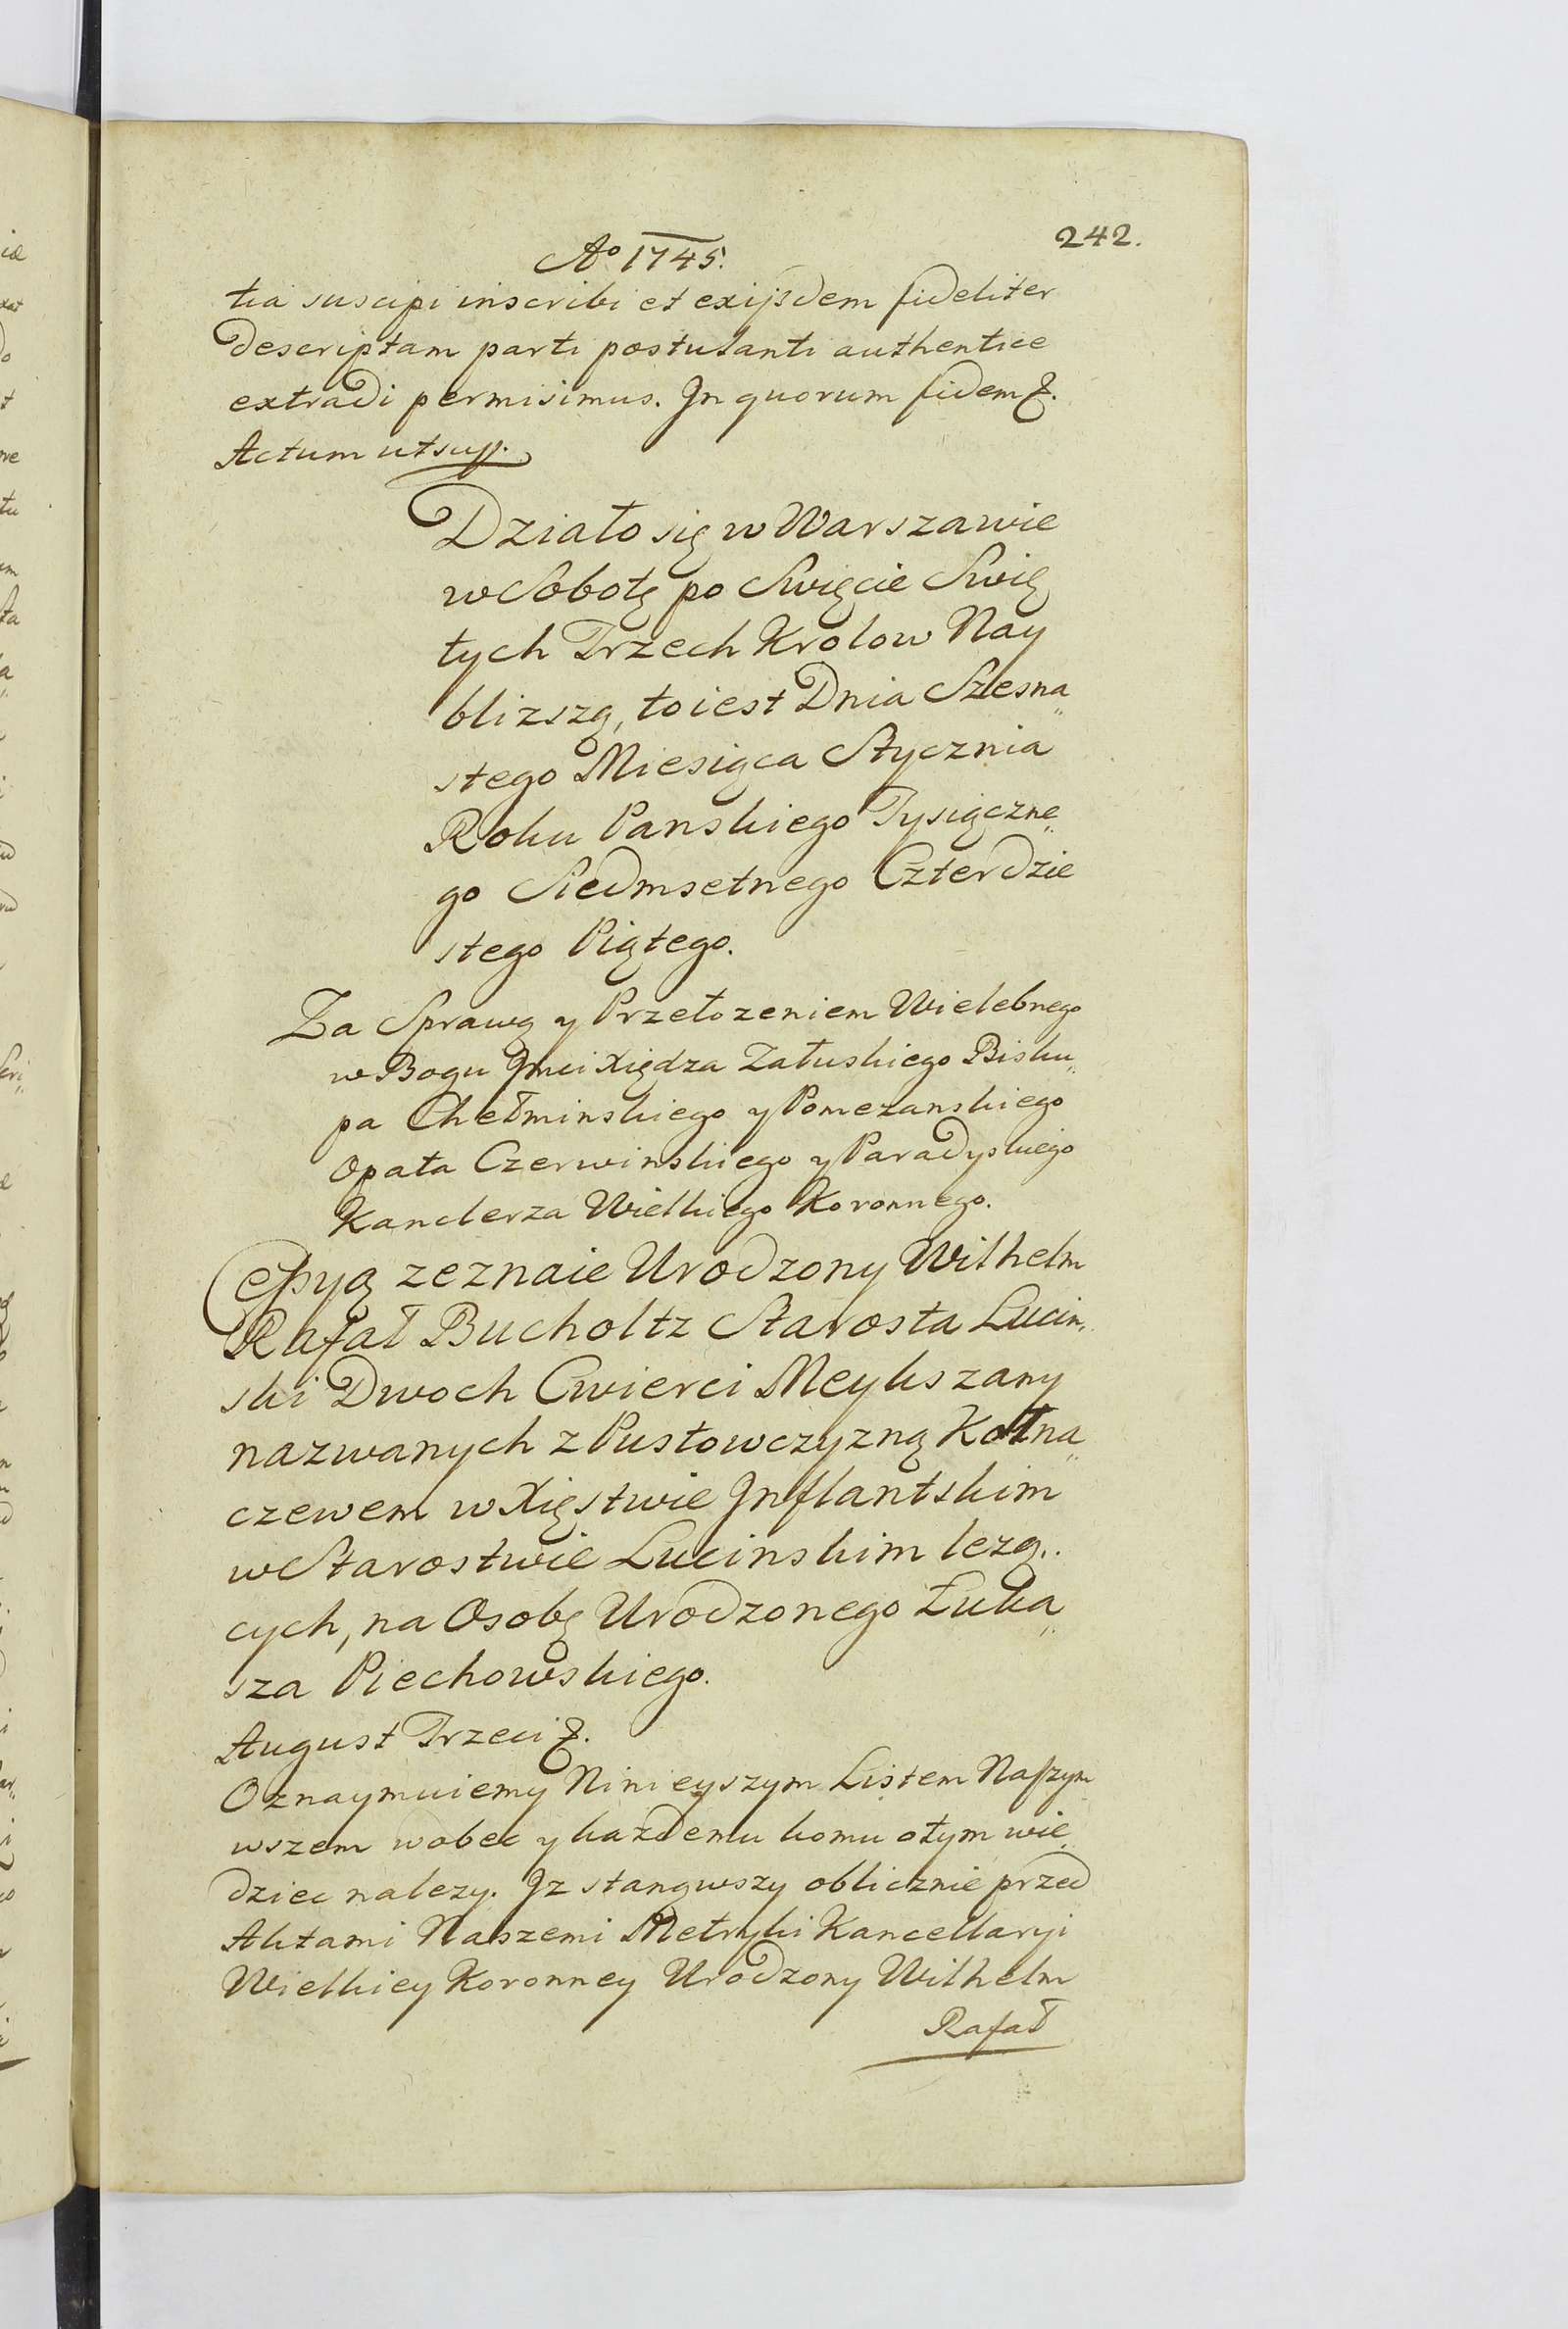 242.
Aº 1745.
tia suscipi inscribi et exijsdem fideliter
descriptam parti postulanti authentice
extradi permisimus. In quorum fidem &.
Actum ut sup.
Działo się w Warszawie
w Sobotę po Swięcie Swię
tych Trzech Krolow Nay
blizszą, toiest Dnia Szesna„
stego Miesiąca Stycznia
Roku Panskiego Tysiączne„
go Siedmsetnego Czterdzie
stego Piątego.
Za Sprawą y Przełozeniem Wielebnego
w Bogu Jmci Xiędza Załuskiego Bisku„
pa Chełminskiego y Pomezanskiego
Opata Czerwinskiego y Paradyskiego
Kanclerza Wielkiego Koronnego.
Cessyą zeznaie Urodzony Wilhelm
Rafał Bucholtz Starosta Lucin„
ski Dwoch Cwierci Meykszany
nazwanych z Pustowczyzną Kołna„
czewem w Xięstwie Inflantskim
w Starostwie Lucinskim lezą„
cych, na Osobę Urodzonego Łuka„
sza Piechowskiego.
August Trzeci &.
Oznaymuiemy Ninieyszym Listem Naszym
wszem wobec y każdemu komu otym wie„
dziec nalezy. Iz stanąwszy oblicznie przed
Aktami Naszemi Metryki Kancellaryi
Wielkiey Koronney Urodzony Wilhelm
Rafał